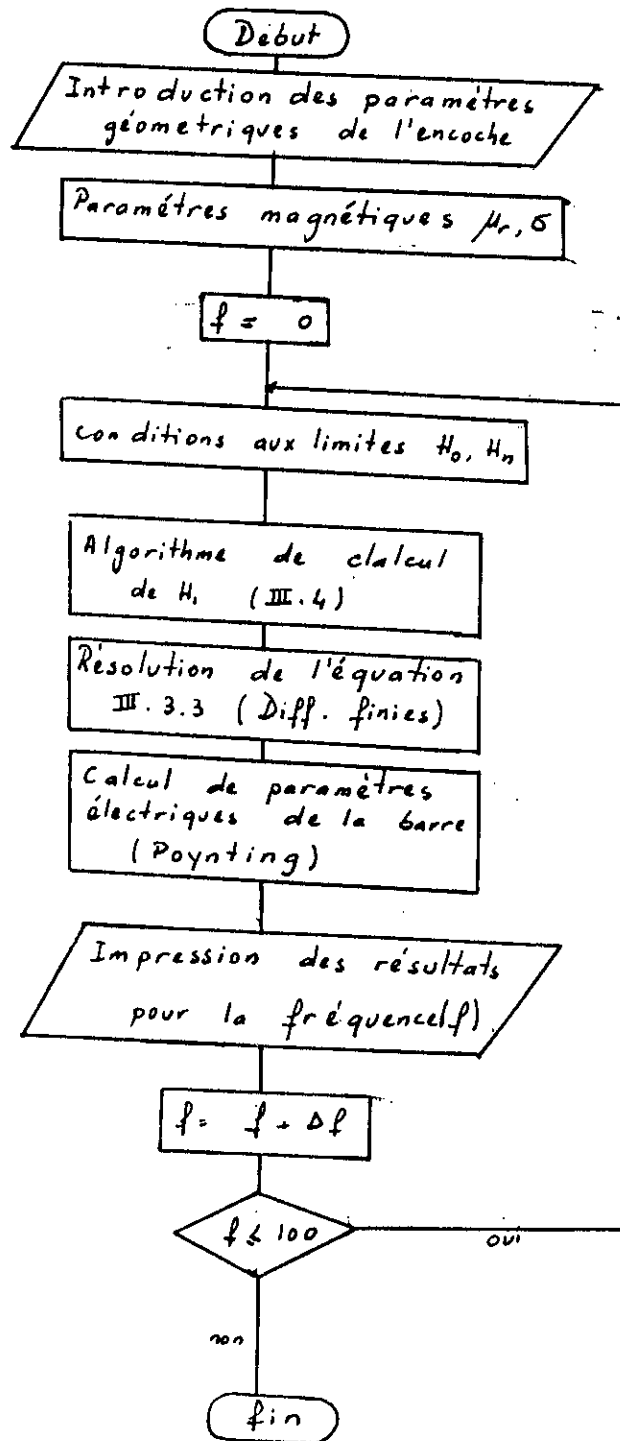 Début
Introduction des paramétres
géometriques de l'encoche
Paramétres magnétiques μr, σ
f = 0
conditions aux limites H₀, Hn
Algorithme de clalcul
de H₁ (III.4)
Résolution de l'équation
III.3.3 (Diff. finies)
Calcul de paramètres
électriques de la barre
(Poynting)
Impression des résultats
pour la fréquence(f)
f = f + Δf
f ≤ 100
oui
non
fin